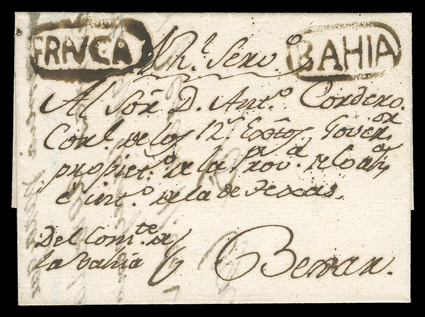 FRANCA Rl. Servo. BAHIA
Al Sōr D. Anto. Cordero.
Corl. de los Rs. Exttos. Goveror
propieto. de la Prova. de Coaha.
é into. de la de Texas.
Del Comte. de
la Bahia
Bexar.